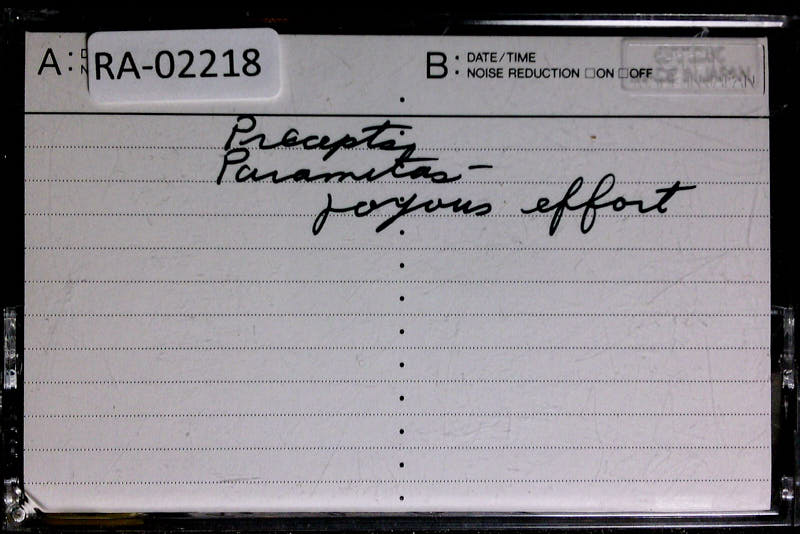 A: RA-02218
B: DATE/TIME
NOISE REDUCTION □ON □OFF
Precepts,
Paramitas –
joyous effort